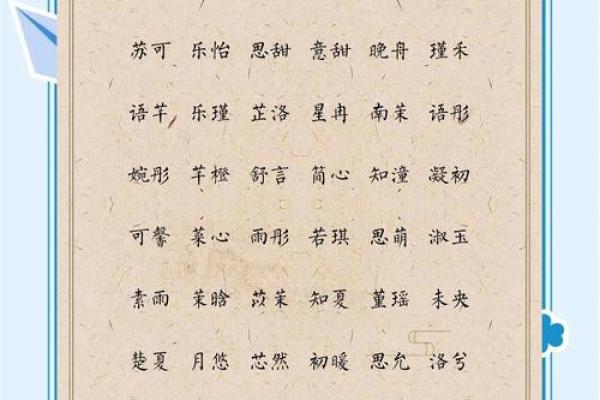 苏可 乐怡 思甜 意甜 晚舟 瑾禾
语芊 乐瑾 芷洛 星冉 南茉 语彤
婉彤 芊橙 舒言 简心 知潼 凝初
可馨 菜心 雨彤 若琪 思萌 淑玉
素雨 茉晗 苡茉 知夏 堇瑶 未央
楚夏 月悠 芯然 初暖 思允 洛兮